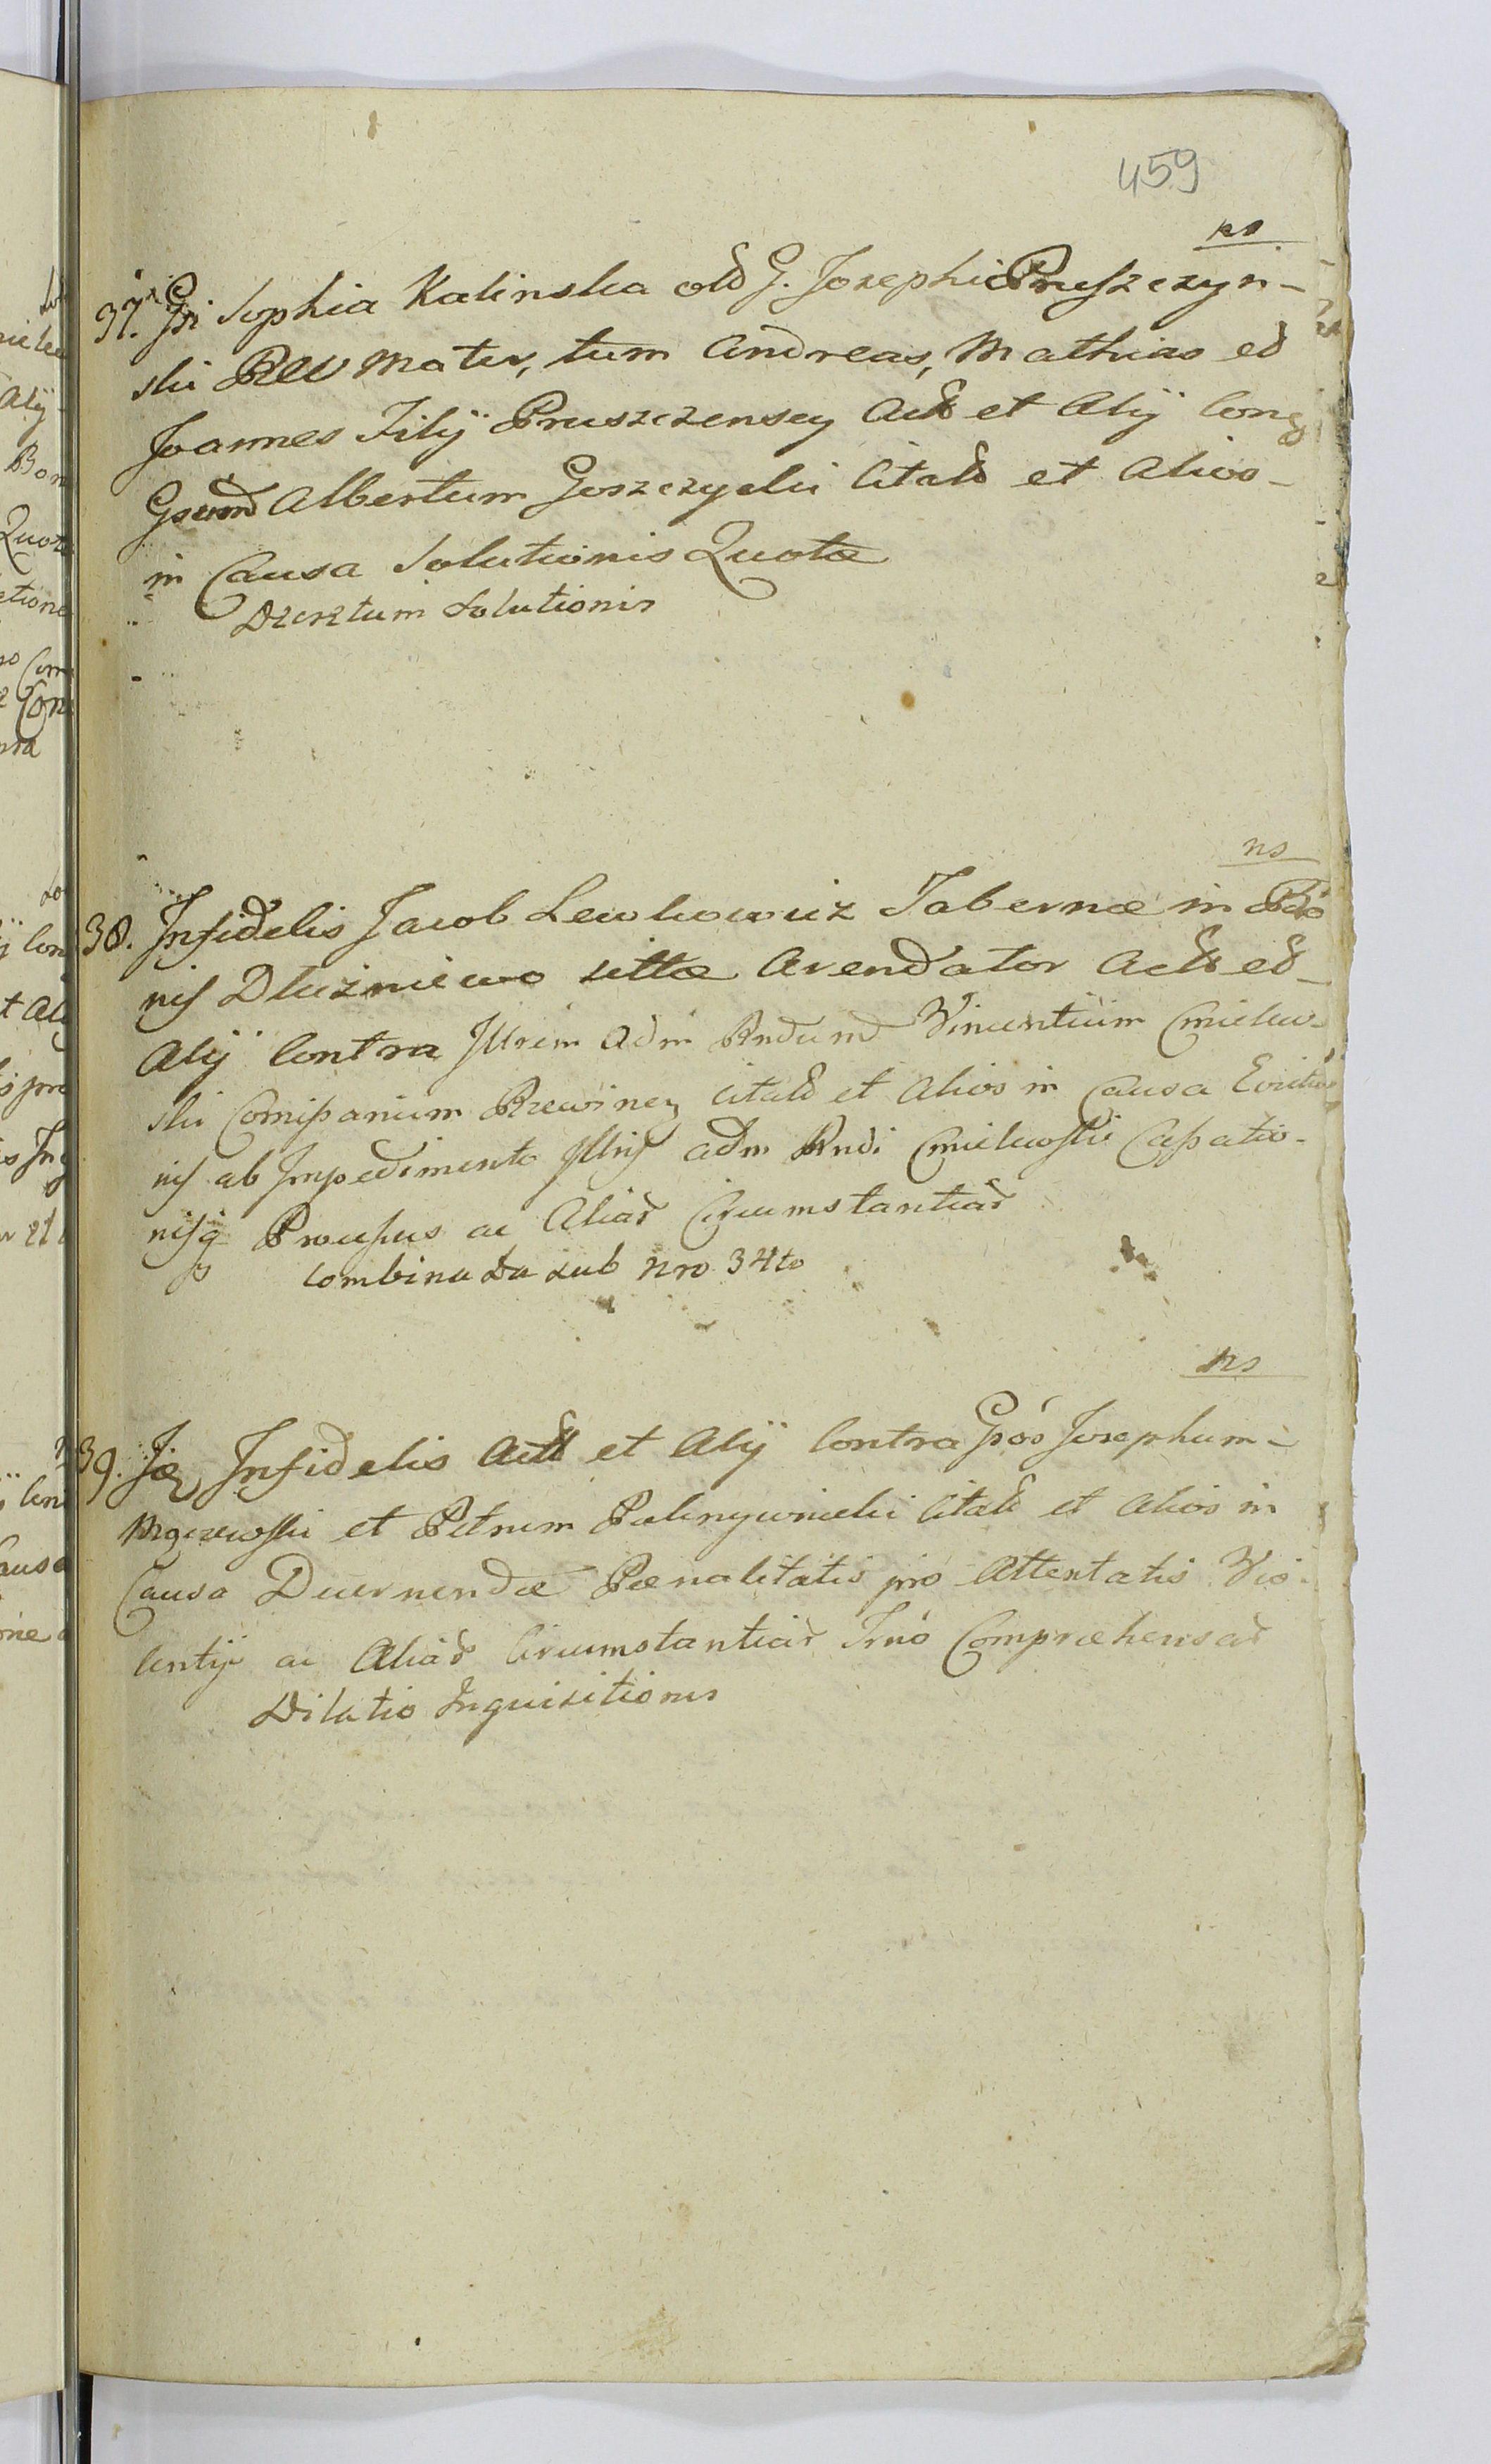 459
ns
37. Gsi Sophia Kalinska olb G. Josephi Pruszczyn-
ski Rel Mater, tum Andreas, Mathias et
Joannes Filij Pruszczenscy Actt et Alij Con
Gsum Albertum Goszczycki Citatt et Alios
in Causa Solutionis Quotæ
Decretum Solutionis
ns
38. Infidelis Jacob Lewkowicz Tabernæ in Bo
nis Dłuzniewo sittæ Arendator Actt et
Alij Contra Illrem Adm Rndum Vincentium Cmielew-
ski Comissarium citatt et Alios in Causa Evictio
nis ab Impedimento Illris adm Rndi Cmielewski Cassatio-
nisq Processus ac Aliar Circumstantiar
Combinata sub Nro 34to
ns
39. Infidelis Actt et Alij Contra Gsos Josephum
et Petrum Citatt et Alios in
Causa Decernendæ Pœnalitatis pro Attentatis Vio-
lentijs ac Aliar Circumstantiar Trno Compræhensar
Dilatio Inquisitionis